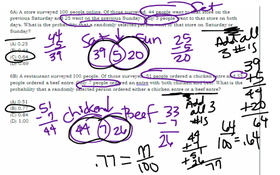 6A) A store surveyed 100 people online. Of those surveyed, 44 people went to that store on the
previous Saturday and 25 went on the previous Sunday. 5 people went to that store on both
days. What is the probability that a randomly selected person went to that store on Saturday or
Sunday?
(A) 0.25
(C) 0.64
44
-5
39
Sat
Sun
39 5 20
25
-5
20
Add all
3 #'s
39
+5
44
+20
64
6B) A restaurant surveyed 100 people. Of those surveyed, 51 people ordered a chicken entree and 33
people ordered a beef entree. 7 people ordered an entree with both chicken and beef. What is the
probability that a randomly selected person ordered either a chicken entree or a beef entree?
(A) 0.51
(B) 0.77
(C) 0.84
(D) 1.00
51
-7
44
chicken
beef
44 7 26
33
-7
26
Add all 3
#'s
44
7
+26
77
64
100 = .64
.77 = 77
100